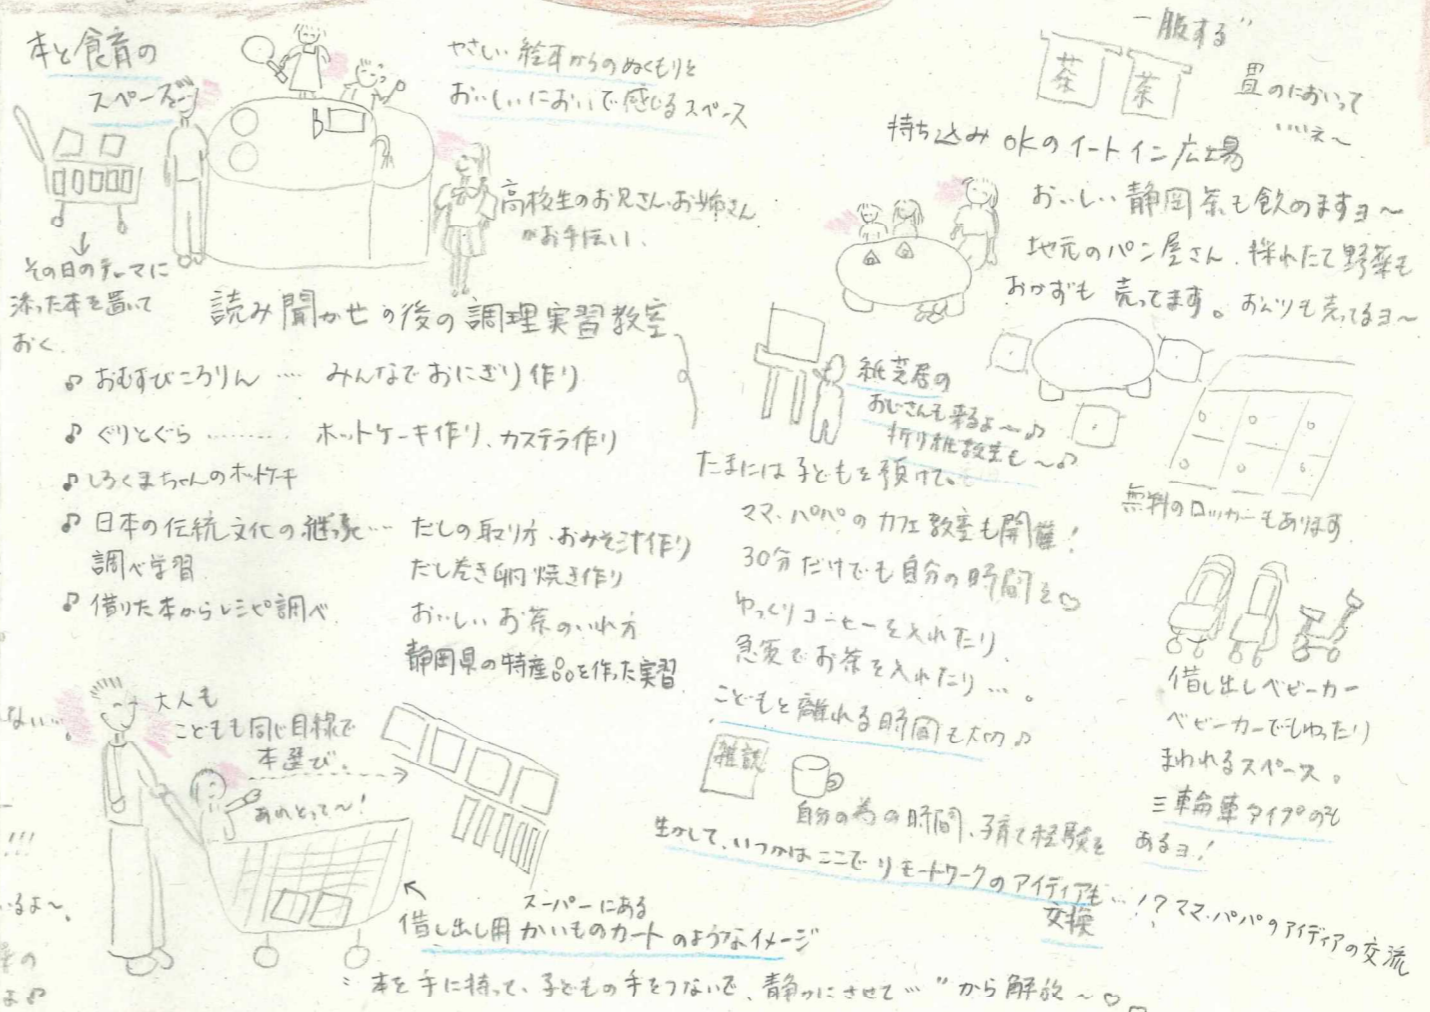 本と食育の
スペース
やさしい絵本からのぬくもりと
おいしいにおいで感じるスペース
高校生のお兄さん、お姉さん
がお手伝い、
その日のテーマに
添った本を置いて
おく
読み聞かせの後の調理実習教室
♪ おむすびころりん … みんなでおにぎり作り
♪ ぐりとぐら ……… ホットケーキ作り、カステラ作り
♪ しろくまちゃんのホットケーキ
♪ 日本の伝統文化の継承… だしの取り方、おみそ汁作り
調べ学習 だし巻き卵焼き作り
♪ 借りた本からレシピ調べ おいしいお茶のいれ方
静岡県の特産品を作った実習
ない…
大人も
こどもも同じ目線で
本選び。
あれとって〜!
!!!
いるよ〜、
スーパーにある
借し出し用かいものカートのようなイメージ
本を手に持って、子どもの手をつないで、静かにさせて…"から解放〜♡
一服する"
茶 茶
畳のにおいって
いいネ〜
持ち込みOKのイートイン広場
おいしい静岡茶も飲めますヨ〜
地元のパン屋さん、採れたて野菜も
おかずも売ってます。おムツも売ってるヨ〜
紙芝居の
おじさんも来るよ〜♪
折り紙教室も〜♪
たまには子どもを預けて。
ママ・パパのカフェ教室も開催!
30分だけでも自分の時間を♡
ゆっくりコーヒーを入れたり、
急須でお茶を入れたり…。
こどもと離れる時間も大切♪
雑誌
自分の為の時間、子育て経験を
生かして、いつかはここでリモートワークのアイディアも…!?ママ・パパのアイディアの交流
交換
無料のロッカーもあります
借し出しベビーカー
ベビーカーでもゆったり
まわれるスペース。
三輪車タイプのも
あるヨ!